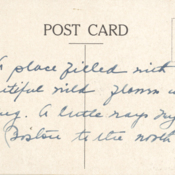 POST CARD
A place filled with
utiful wild flowers
ug. A little ways
Boston to the north